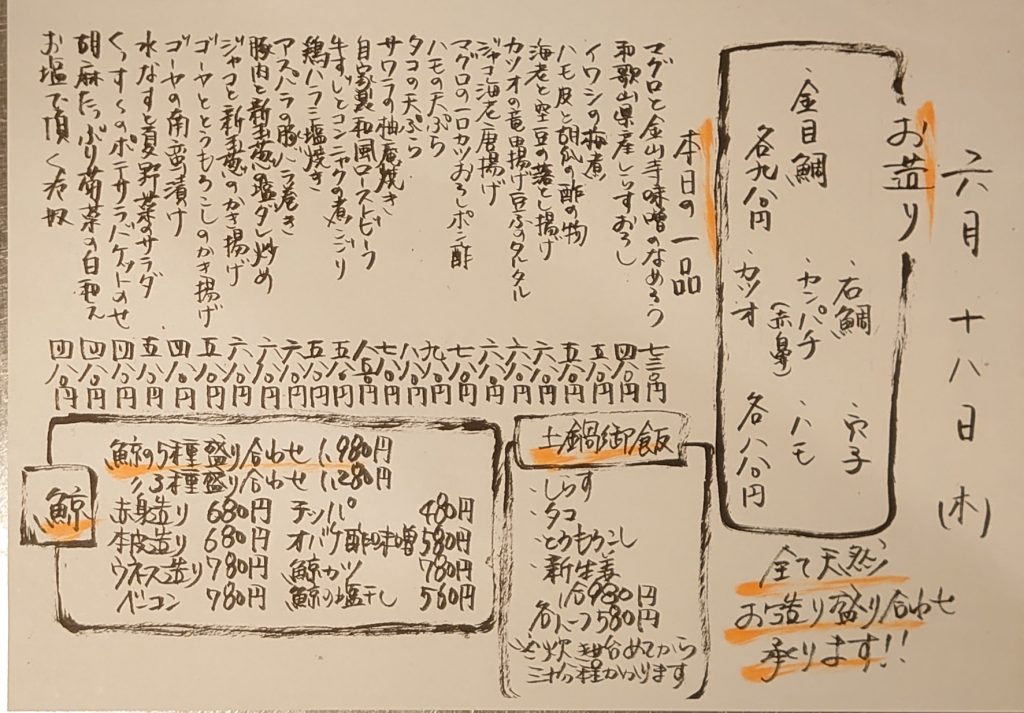 六月十八日(木)
お造り
・金目鯛
各九八〇円
・石鯛
・カンパチ
(赤鼻)
・カツオ
・穴子
・ハモ
各八八〇円
全て天然
お造り盛り合わせ
承ります!!
本日の一品
マグロと金山寺味噌のなめろう 七三〇円
和歌山県産しらすおろし 四八〇円
イワシの梅煮 五八〇円
ハモ皮と胡瓜の酢の物 五八〇円
海老と空豆の落とし揚げ 六八〇円
カツオの竜田揚げ豆ふのタルタル 六八〇円
ジャコ海老唐揚げ 六八〇円
マグロの一口カツおろしポン酢 七八〇円
ハモの天ぷら 九八〇円
タコの天ぷら 八八〇円
サワラの柚庵焼き 九八〇円
自家製和風ローストビーフ 八五〇円
牛すじとコンニャクの煮こごり 五八〇円
鶏ハラミ塩焼き 五八〇円
アスパラの豚バラ巻き 六八〇円
豚肉と新玉葱の塩ダレ炒め 六八〇円
ジャコと新玉葱のかき揚げ 六八〇円
ゴーヤととうもろこしのかき揚げ 五八〇円
ゴーヤの南蛮漬け 四八〇円
水なすと夏野菜のサラダ 五八〇円
くっすぐのポテサラバケットのせ 四八〇円
胡麻たっぷり菊菜の白和え 四八〇円
お塩で頂く冷奴 四八〇円
土鍋御飯
・しらす
・タコ
・とうもろこし
・新生姜
一合980円
各ハーフ580円
ご炊き始めてから
三十分程かかります
鯨
鯨の5種盛り合わせ 1,980円
〃3種盛り合わせ 1,280円
赤身造り 680円
本皮造り 680円
ウネス造り 780円
ベーコン 780円
テッパ 480円
オバケ酢味噌 580円
鯨カツ 780円
鯨の塩干し 560円